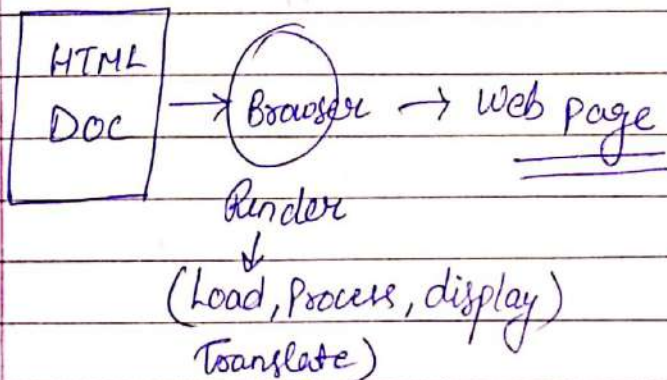 HTML
DOC → Browser → Web page
Render
↓
(Load, Process, display
Translate)